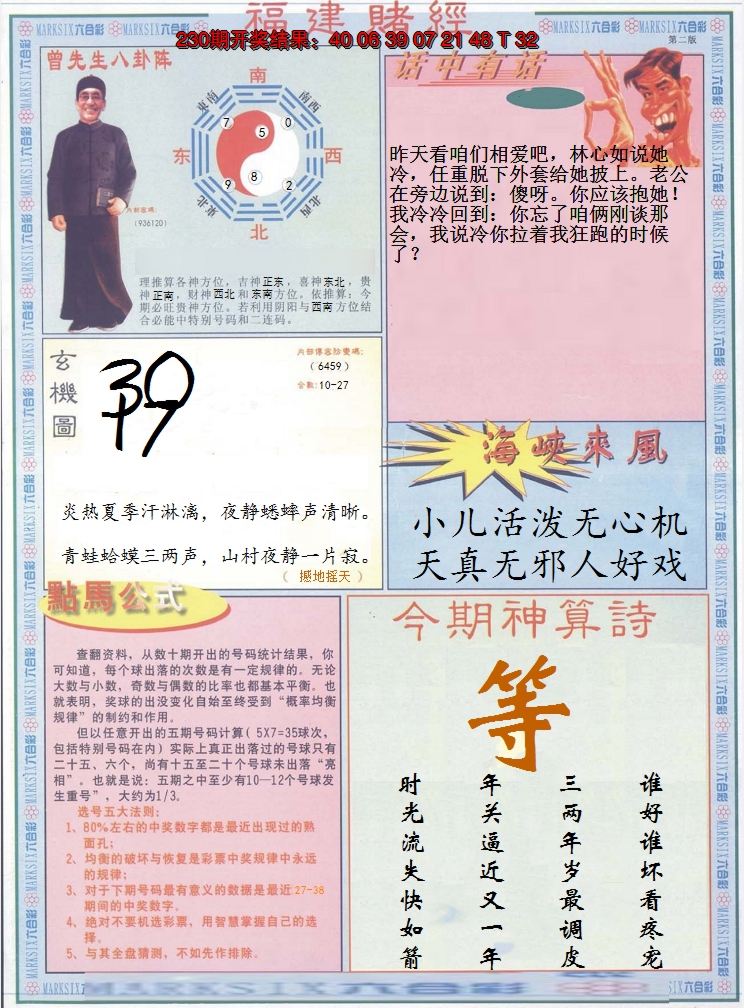 福建賭經
230期开奖结果：40 06 39 07 21 48 T 32
第二版
MARKSIX六合彩
曾先生八卦阵
南
东南
南西
7
5
0
东
西
9
8
2
東北
北西
北
内部密碼:
（936120）
理推算各神方位，吉神正东，喜神东北，贵
神正南，财神西北和东南方位。依推算：今
期必旺贵神方位。若利用阴阳与西南方位结
合必能中特别号码和二连码。
话中有话
昨天看咱们相爱吧，林心如说她
冷，任重脱下外套给她披上。老公
在旁边说到：傻呀。你应该抱她！
我冷冷回到：你忘了咱俩刚谈那
会，我说冷你拉着我狂跑的时候
了？
玄機圖
内部傳容防變碼:
（6459）
合数:10-27
炎热夏季汗淋漓，夜静蟋蟀声清晰。
青蛙蛤蟆三两声，山村夜静一片寂。
（ 撼地摇天 ）
海峽來風
小儿活泼无心机
天真无邪人好戏
點馬公式
查翻资料，从数十期开出的号码统计结果，你
可知道，每个球出落的次数是有一定规律的。无论
大数与小数，奇数与偶数的比率也都基本平衡。也
就表明，奖球的出没变化自始至终受到“概率均衡
规律”的制约和作用。
但以任意开出的五期号码计算( 5X7=35球次，
包括特别号码在内）实际上真正出落过的号球只有
二十五、六个，尚有十五至二十个号球未出落“亮
相”。也就是说：五期之中至少有10—12个号球发
生重号”，大约为1/3。
选号五大法则：
1、80%左右的中奖数字都是最近出现过的熟
面孔；
2、均衡的破坏与恢复是彩票中奖规律中永远
的规律；
3、对于下期号码最有意义的数据是最近27-38
期间的中奖数字。
4、绝对不要机选彩票，用智慧掌握自己的选
择。
5、与其全盘猜测，不如先作排除。
今期神算詩
等
谁好谁坏看疼宠
三两年岁最调皮
年关逼近又一年
时光流失快如箭